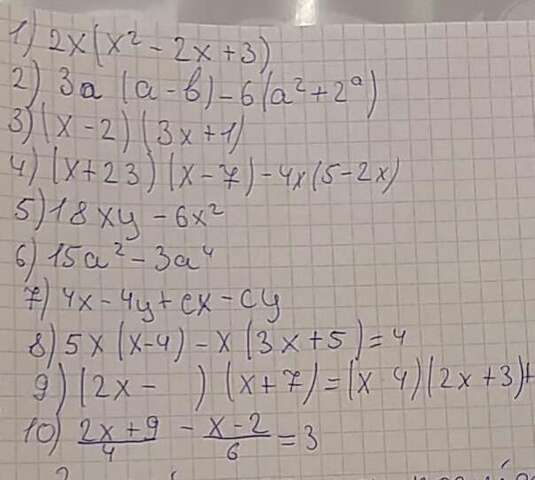 1) 2x(x² - 2x + 3)
2) 3a (a - b) - 6(a² + 2ᵃ)
3) (x - 2) (3x + 1)
4) (x + 23) (x - 7) - 4x(5 - 2x)
5) 18xy - 6x²
6) 15a² - 3a⁴
7) 4x - 4y + cx - cy
8) 5x (x - 4) - x (3x + 5) = 4
9) (2x - ) (x + 7) = (x 4) (2x + 3) +
10) (2x + 9)/4 - (x - 2)/6 = 3